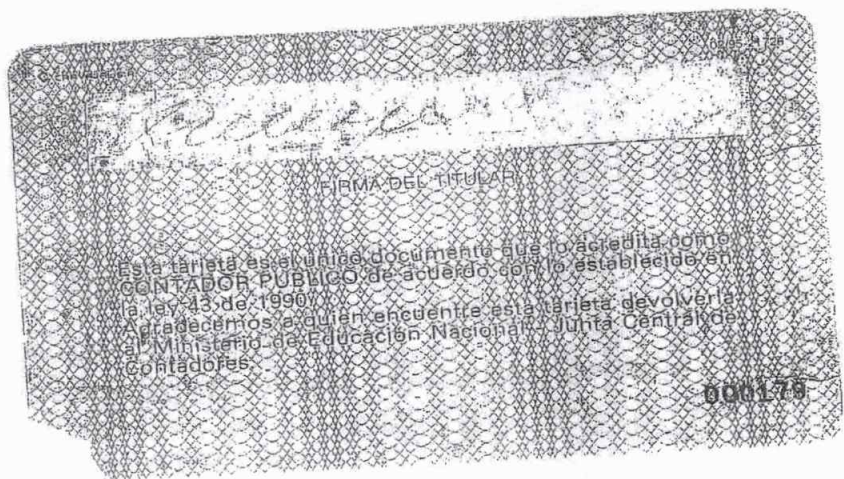 FIRMA DEL TITULAR
Esta tarjeta es el único documento que lo acredita como
CONTADOR PUBLICO de acuerdo con lo establecido en
la ley 43 de 1990.
Agradecemos a quien encuentre esta tarjeta devolverla
al Ministerio de Educación Nacional - Junta Central de
Contadores.
000179